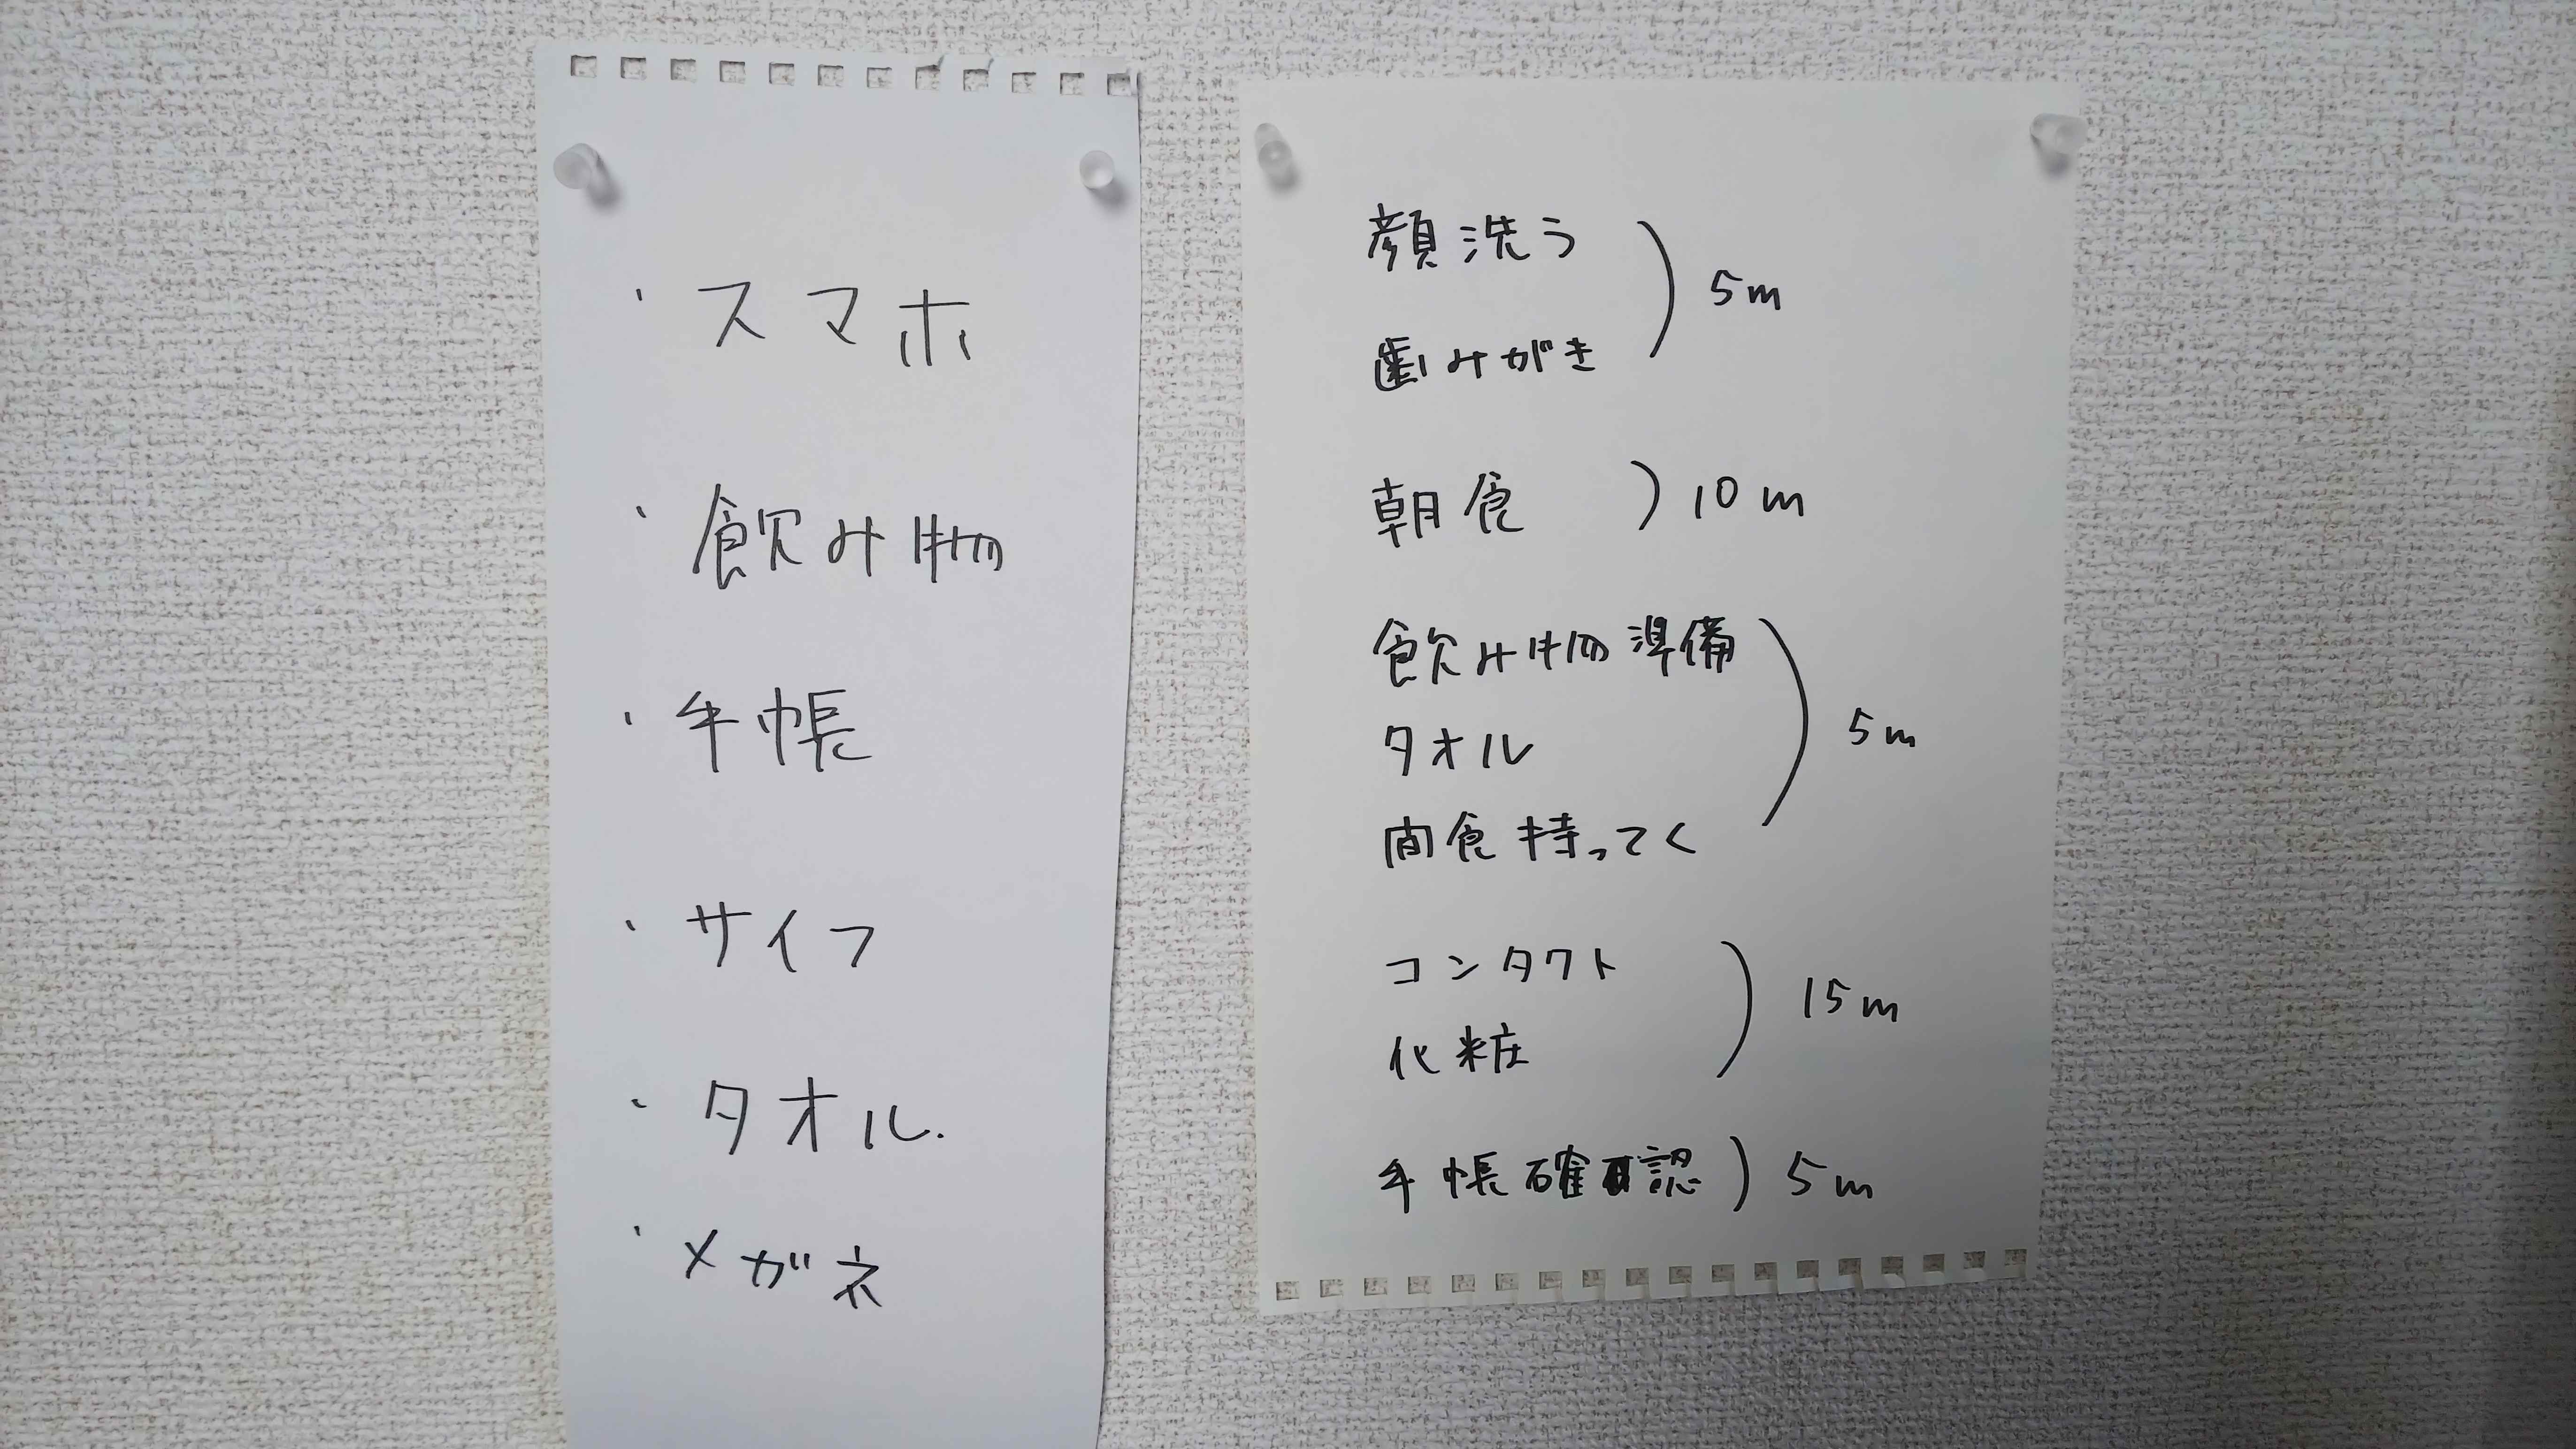 ・スマホ
・飲み物
・手帳
・サイフ
・タオル.
・メガネ
顔洗う
歯みがき
) 5m
朝食 ) 10m
飲み物準備
タオル
間食持ってく
) 5m
コンタクト
化粧
) 15m
手帳確認 ) 5m